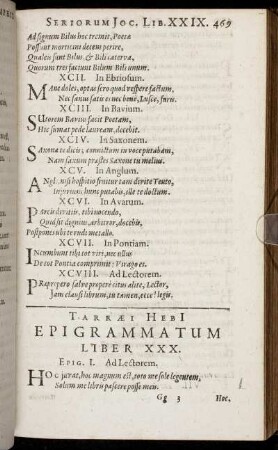 SERIORUM JOC. LIB. XXIX. 469
Ad signum Bilus hoc trimit, Poeta
Possunt morticini decem perire,
Quales sunt Bilus, & Bilicaterva,
Quorum tres faciunt Bilum Bili unum.
XCII. In Ebriosum.
MAne doles, optas sero quod vespere factum,
Nec sanus satis es nec bene, Lusce, furis.
XCIII. In Bavium.
SUtorem Bavius facit Poetam,
Hic sumat pede lauream, decebit.
XCIV. In Saxonem.
SAxona te dicis, convictum eu voce putabam,
Nam saxum praestes Saxone tu melius.
XCV. In Anglum.
XCVI. In Avarum.
PArcis
Quod sit dignius, arbitror, docebis,
Postponis ubi te
XCVII. In Pontiam.
INcumbunt tibi tot viri, nec
De tot Pontia comprimit: Virago es.
XCVIII. Ad Lectorem.
PRaeripero salve propere citus alite, Lector,
Jam clausi librum, tu tamen, ecce! legis.
TARRÆI HEBI
EPIGRAMMATUM
LIBER XXX.
EPIG. I. Ad Lectorem.
HOc jurat, hoc magnum est, toto me sole legentem,
Solum me libris pascere posse meis.
Gg 3 Hoc.